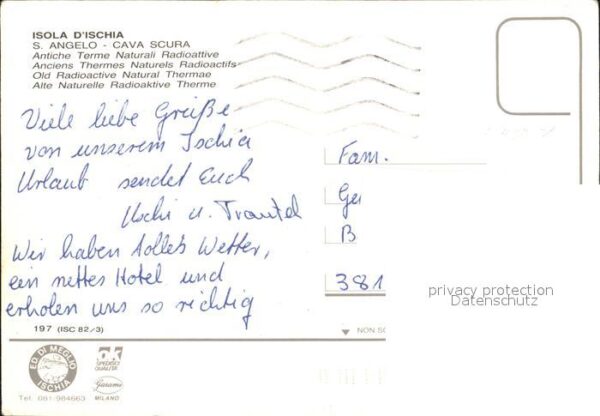 ISOLA D'ISCHIA
S. ANGELO - CAVA SCURA
Antiche Terme Naturali Radioattive
Anciens Thermes Naturels Radioactifs
Old Radioactive Natural Thermae
Alte Naturelle Radioaktive Therme
Viele liebe Grüße
von unserem Ischia
Urlaub sendet Euch
Uschi u. Trautel
Wir haben tolles Wetter,
ein nettes Hotel und
erholen uns so richtig
Fam.
Ge
B
381
privacy protection
Datenschutz
197 (ISC 82/3)
NON SC
ED. DI MEGLIO
ISCHIA
Tel. 081-984663
OK
SPEDISCI
QUALITA'
Garami
MILANO